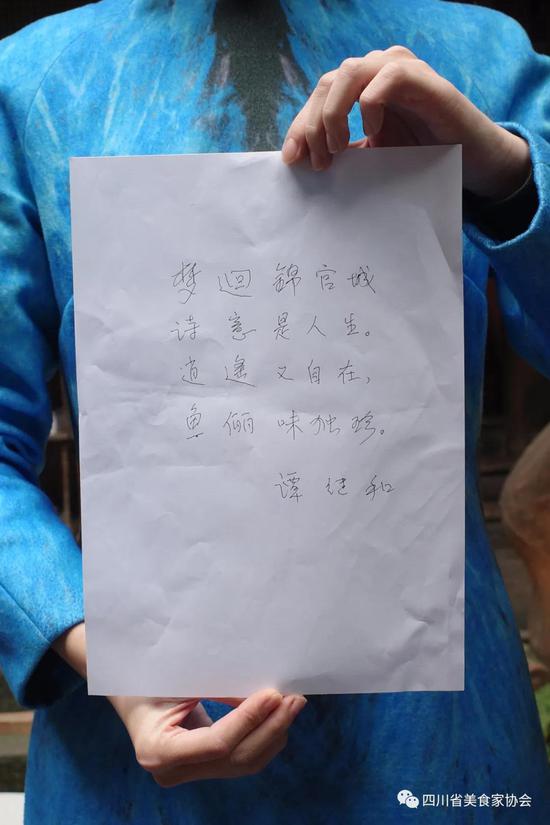 梦迴锦官城
诗意是人生。
逍遥又自在,
鱼俪味独珍。
谭继和
四川省美食家协会